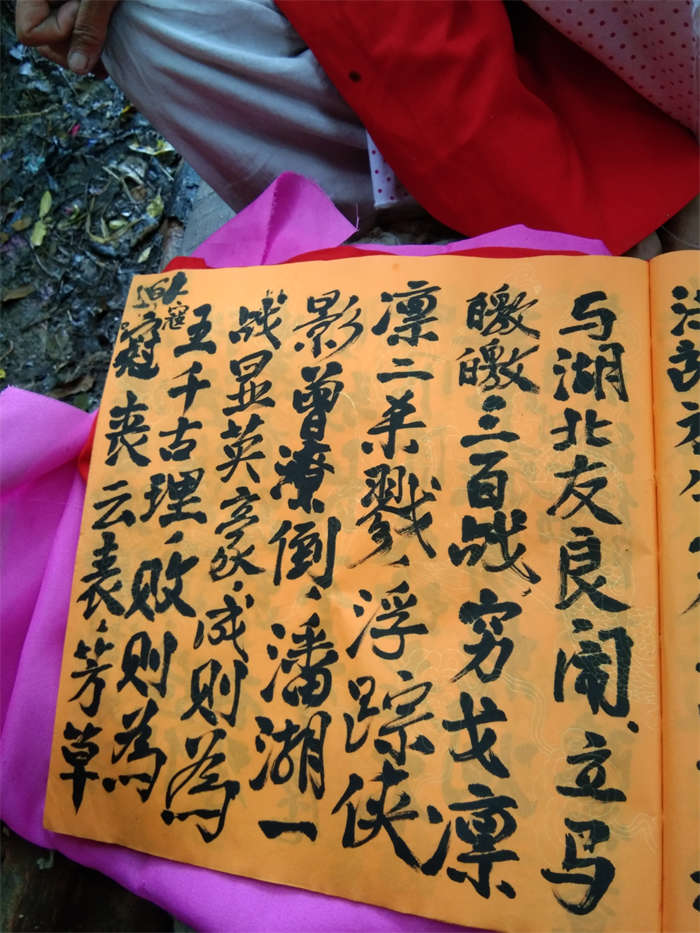 与湖北友良闹，立马
皦皦三百战，穷戈凛
凛二杀戮，浮踪侠
影曾潦倒，潘湖一
战显英豪，成则为
王千古理，败则为
寇
寇丧云表，芳草